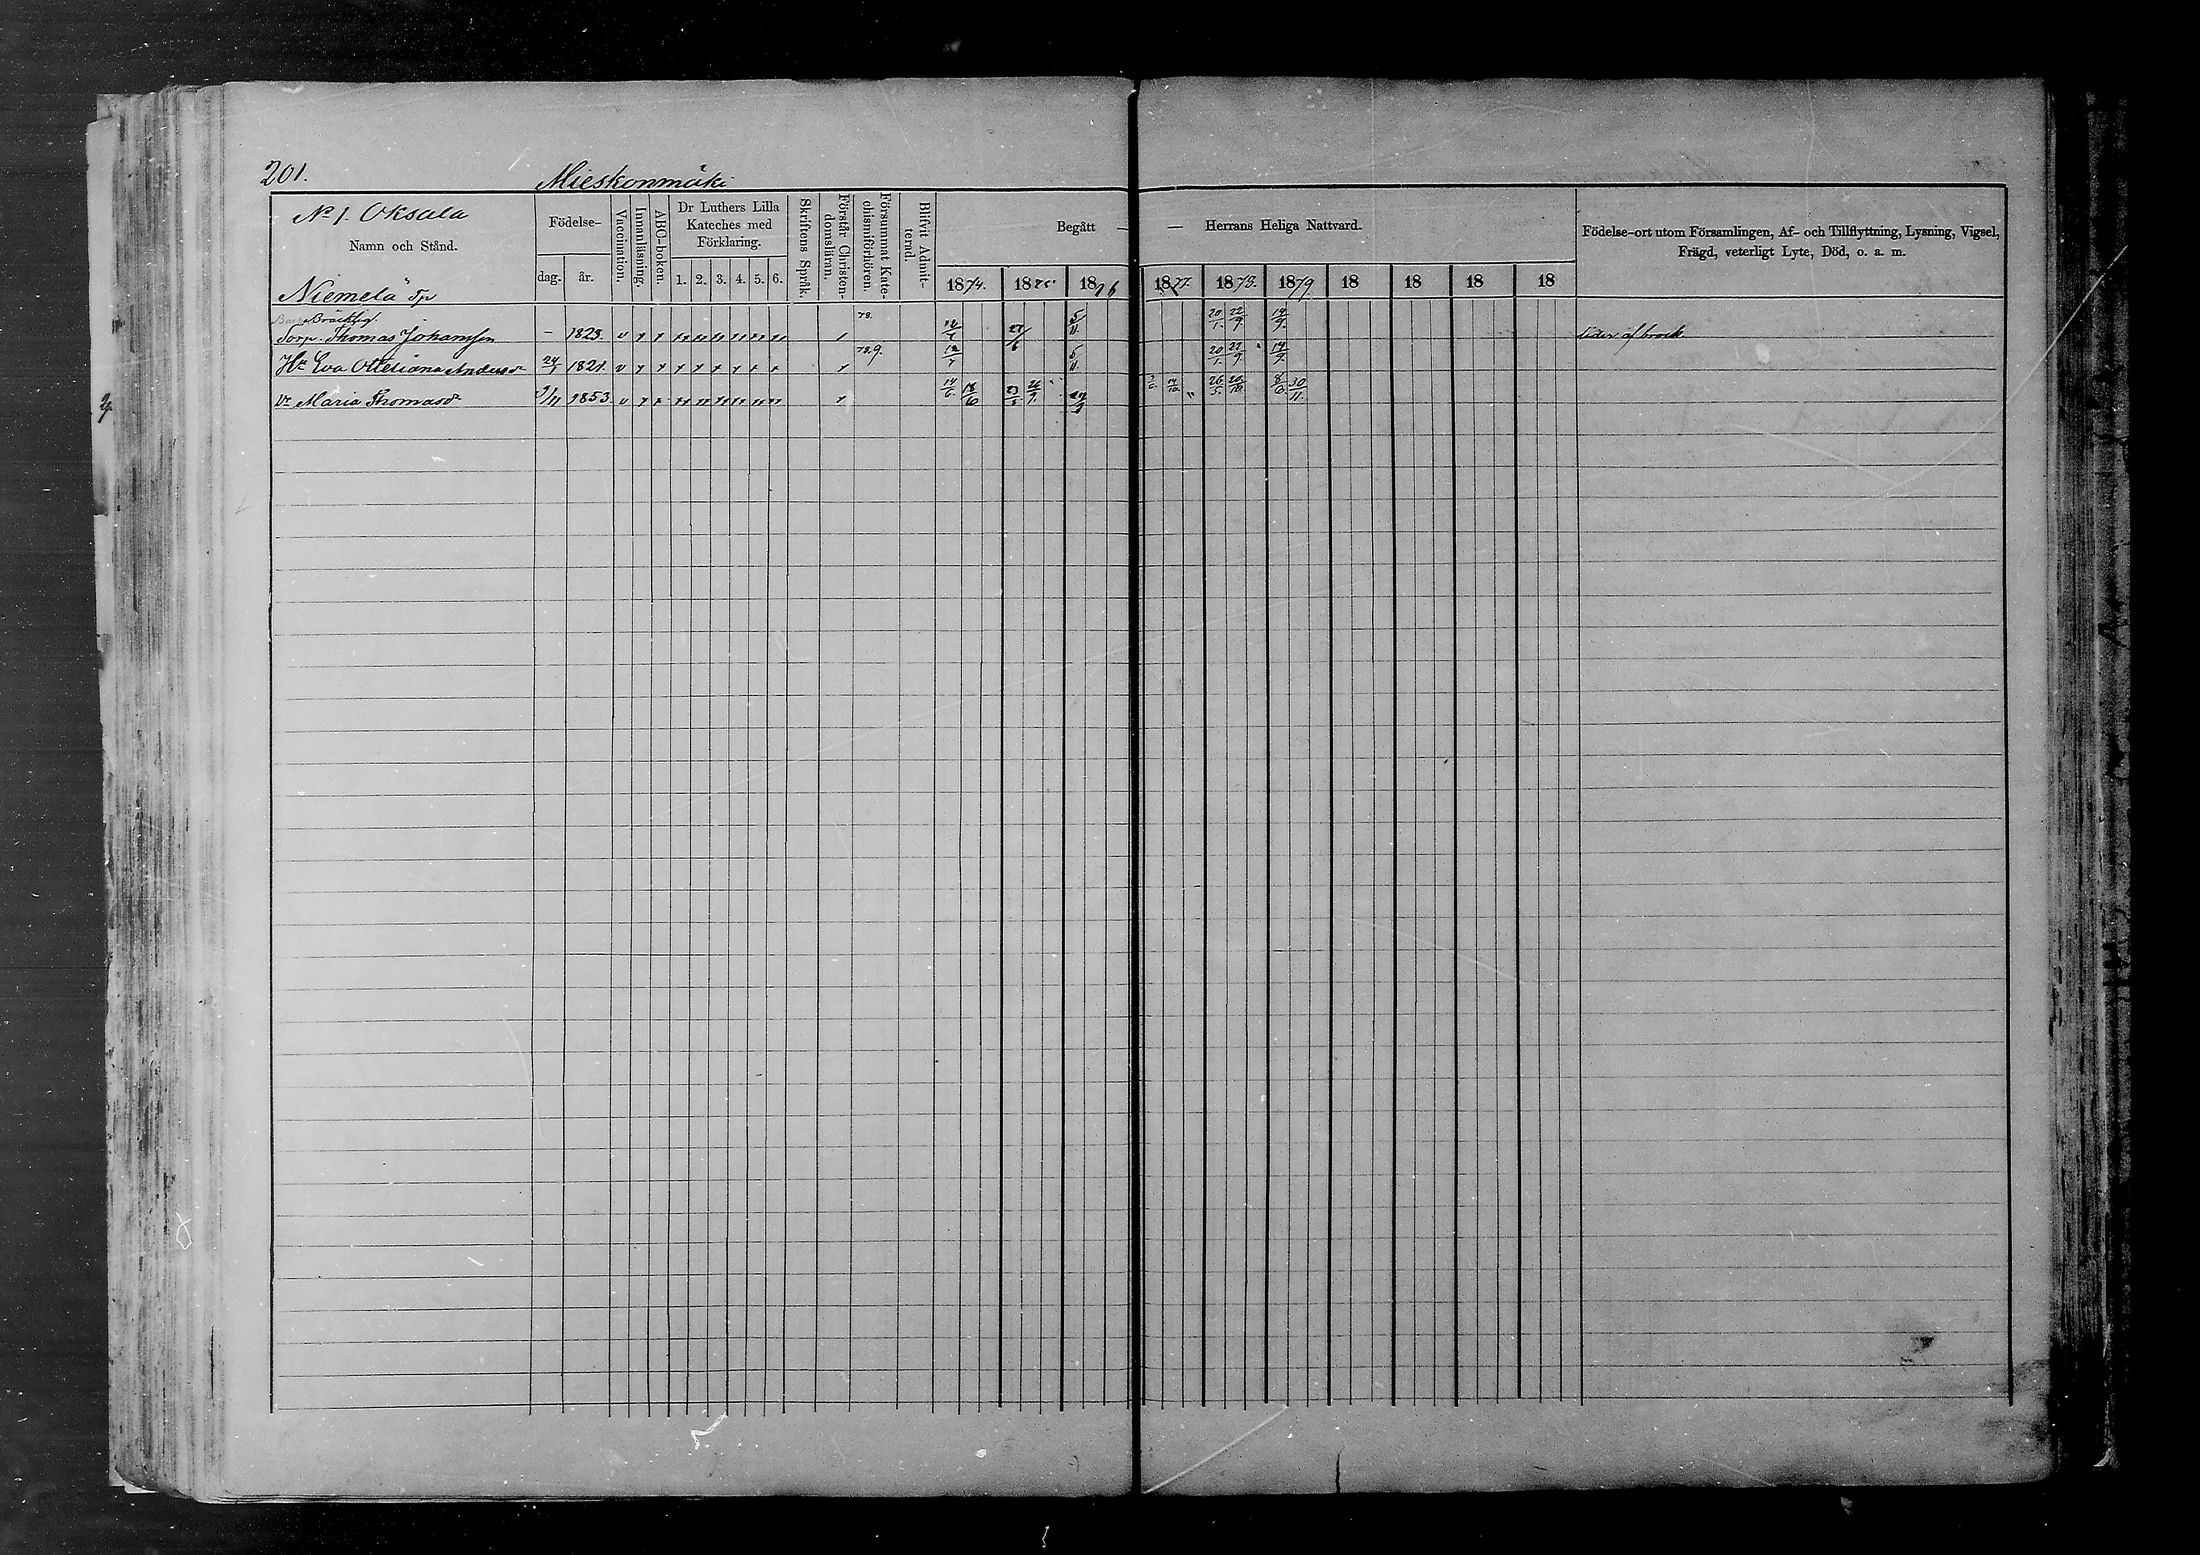 201.
Mieskonmäki
No 1. Oksala
Namn och Stånd.
Födelse-
dag.
år.
Vaccination.
Innanläsning.
ABC-boken.
Dr Luthers Lilla
Kateches med
Förklaring.
1. 2. 3. 4. 5. 6.
Skriftens Språk.
Förstår Christen-
domsläran.
Försummat Kate-
chismiförhören.
Blifvit Admit-
terad.
Begått — — Herrans Heliga Nattvard.
1874. 1875. 1876 1877. 1878. 1879. 18 18 18 18
Födelse-ort utom Församlingen, Af- och Tillflyttning, Lysning, Vigsel,
Frägd, veterligt Lyte, Död, o. a. m.
Niemelä Tp
Bräcklig
Torp. Thomas Johansson — 1823. 78. 27/6 5/11 20/1. 22/9. 14/9. lider af brock
Hu Eva Otteliana Andersdr 24/1 1821. 78.9. 5/11. 20/1. 22/9. 14/9.
Dr Maria Thomasdr 21/11 1853. 14/6. 18/6 26/9. 14/10. 26/5. 20/10. 8/6. 30/11.